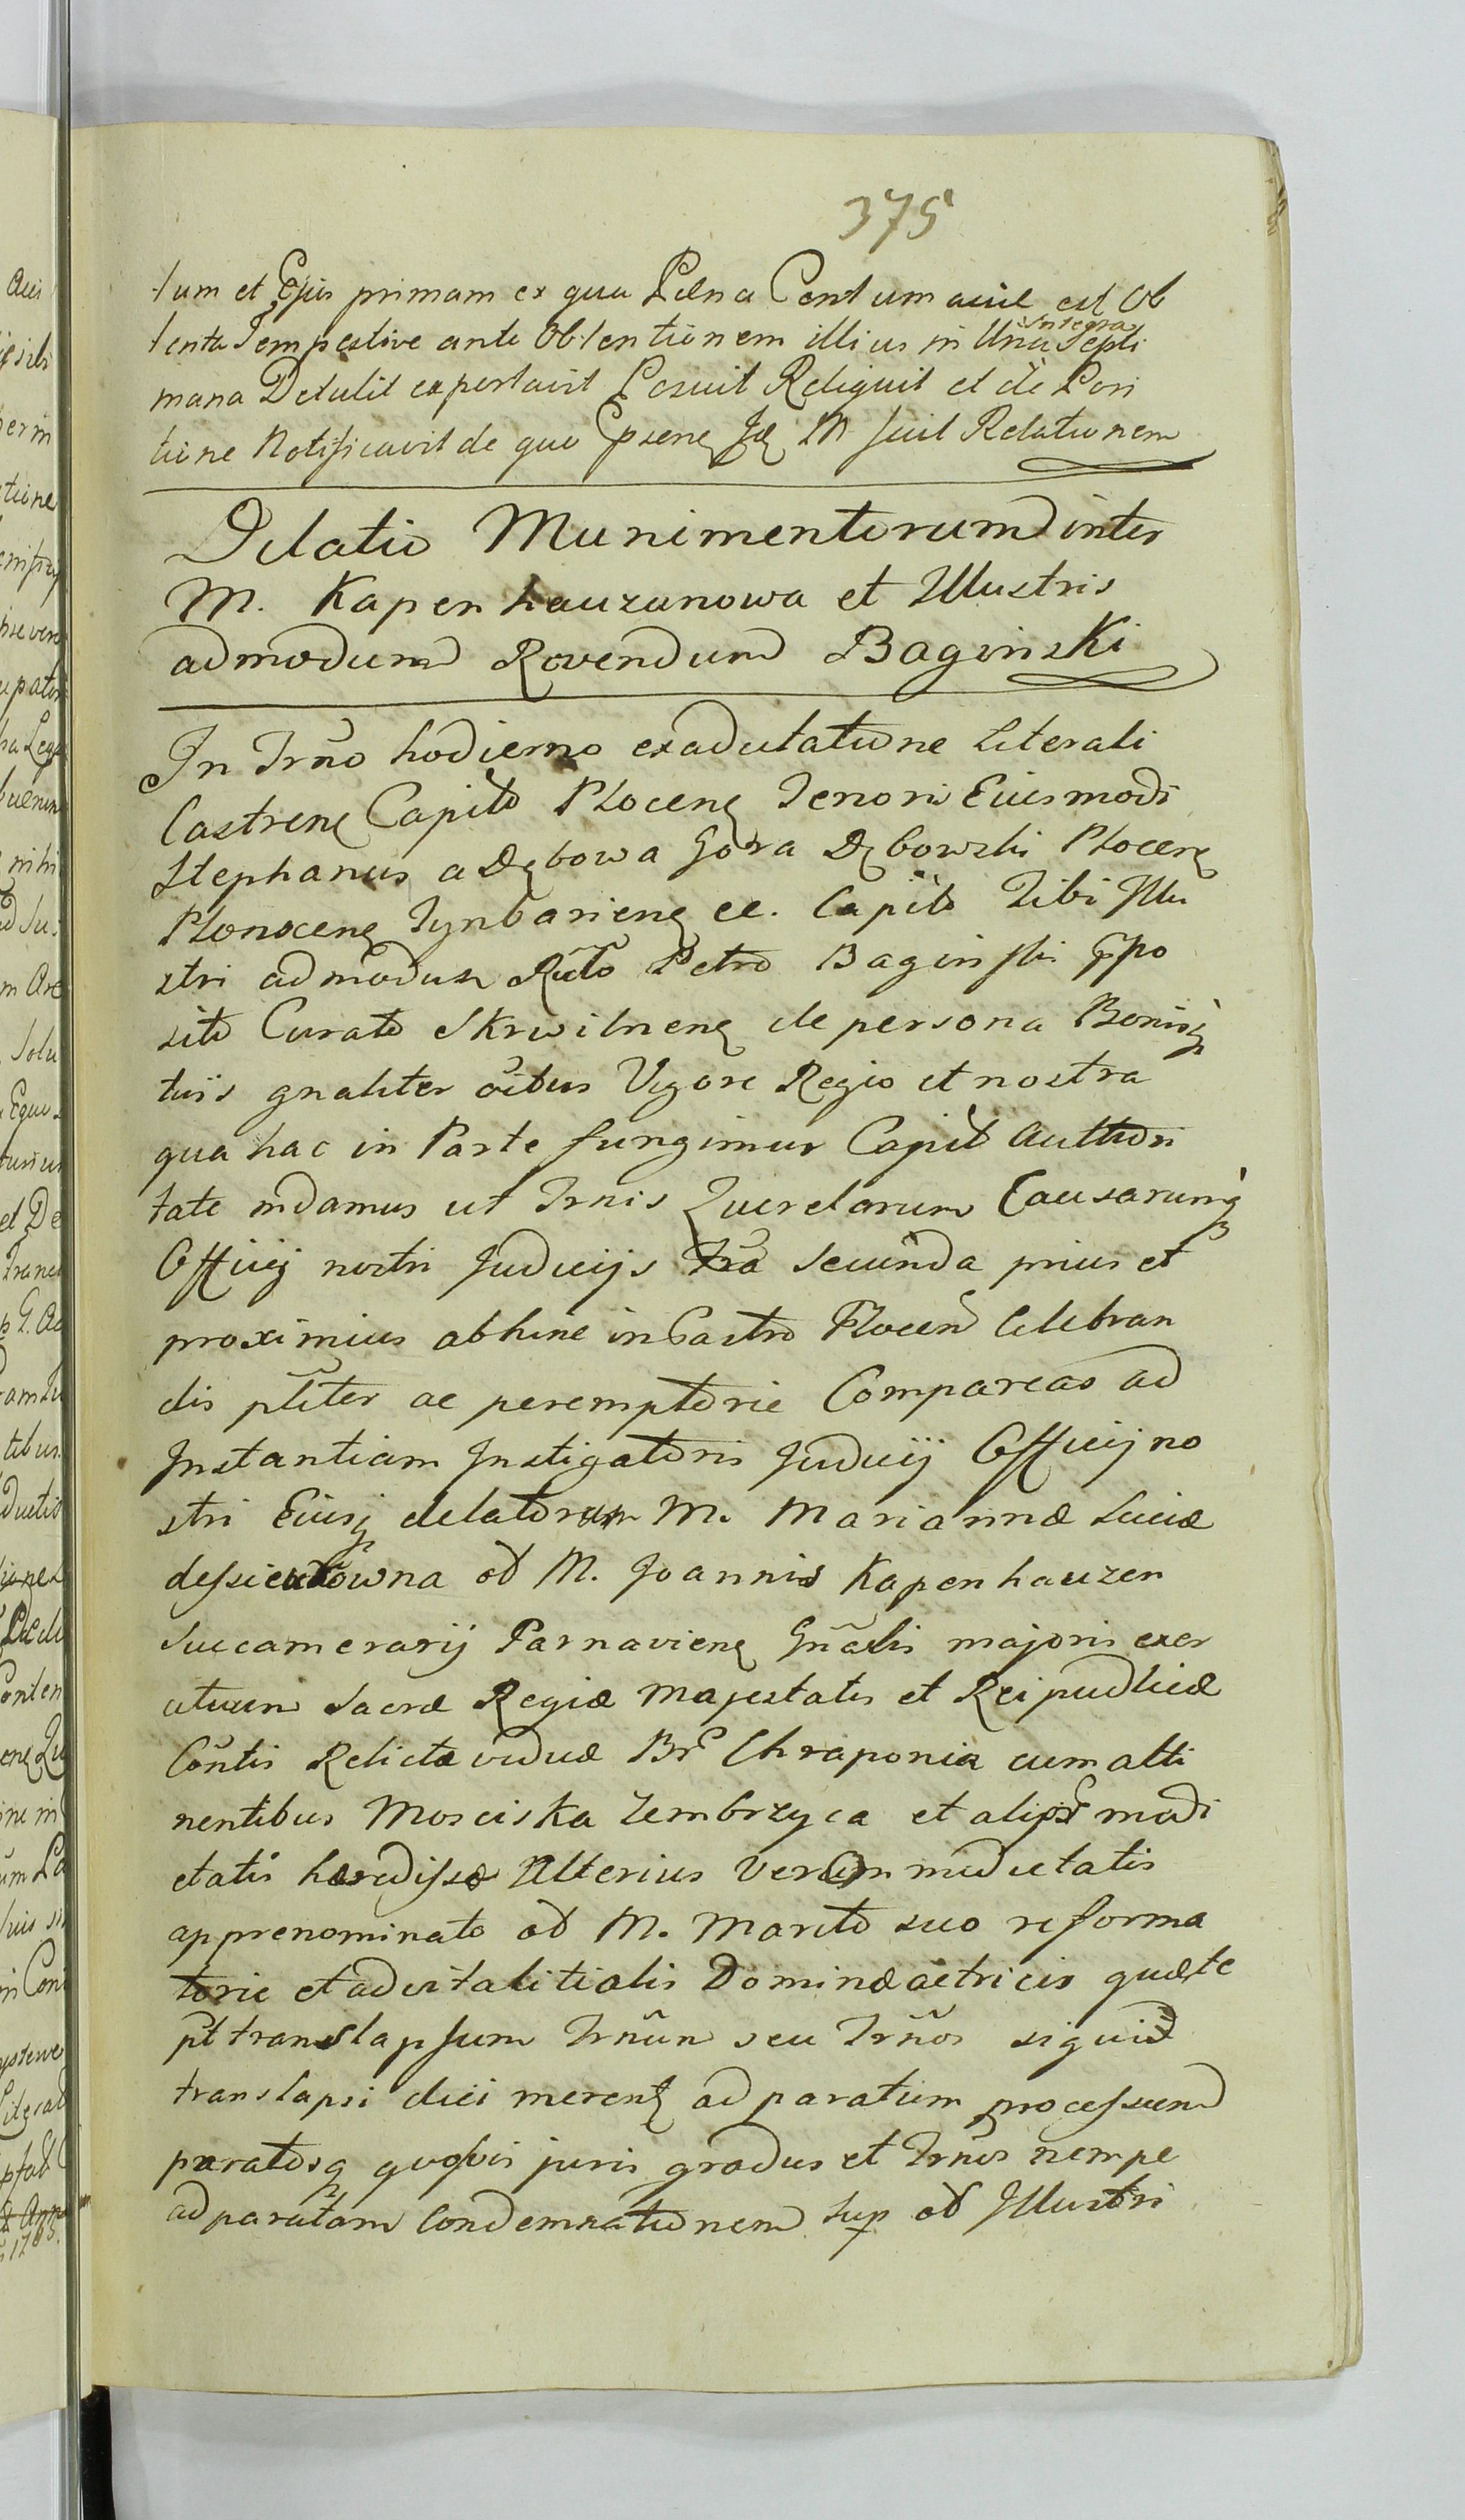 375
tum et Ejus primam ex qua Pæna Contumaciæ est Ob
tenta Tempestive ante Obtentionem illius in Una Integra Septi
mana Detulit exportavit Posuit Reliquit et de Posi
tione Notificavit de quo Pseng M fecit Relationem
Delatio Munimentorum inter
M. Kapenhauzanowa et Illustris
admodum Rovendum Baginski
In Trño hodierno exadcitatione Literali
Castreng Capitō Ploceng Tenoris Eiusmodi
Stephanus a Dębowa Gora Dębowski Ploceng
Plonsceng Tynbarieng ee. Capitō Tibi Illu
stri admodum Rńdo Petro Baginski Ppo
sito Curato Skrwilneng de persona Bonisq
tuis gnaliter oibus Vigore Regio et nostra
qua hac in Parte fungimur Capitō Authori
tate mdamus ut Trnis Querelarum Causarumq
Officij nostri Judicijs Fra Secunda prius et
proximius abhinc in Castro Plocen Celebran
dis pliter ac peremptorie Compareas ad
Instantiam Instigatoris Judicij Officij no
stri Eiusq delatorum M. Mariannæ Luciæ
od M. Joannis Kapenhauzen
Succamerarij Parnavieng Gñalis majoris exer
cituum Sacræ Regiæ Majestatis et Reipublicæ
Coñtis Relictæ viduæ Br Chraponia cum atti
nentibus Mosciska Zembrzyca et alips medi
etatis hæredissæ Alterius Verum medietatis
apprenominato od M. Marito suo reforma
torie et advitalitialis Dominæ actricis quæ te
pt translapsum Trñum seu Trños siquid
translapsi dici merent ad paratum processum
paratosq quosvis juris gradus et Trños nempe
ad paratam Condemnationem sup od Illustri